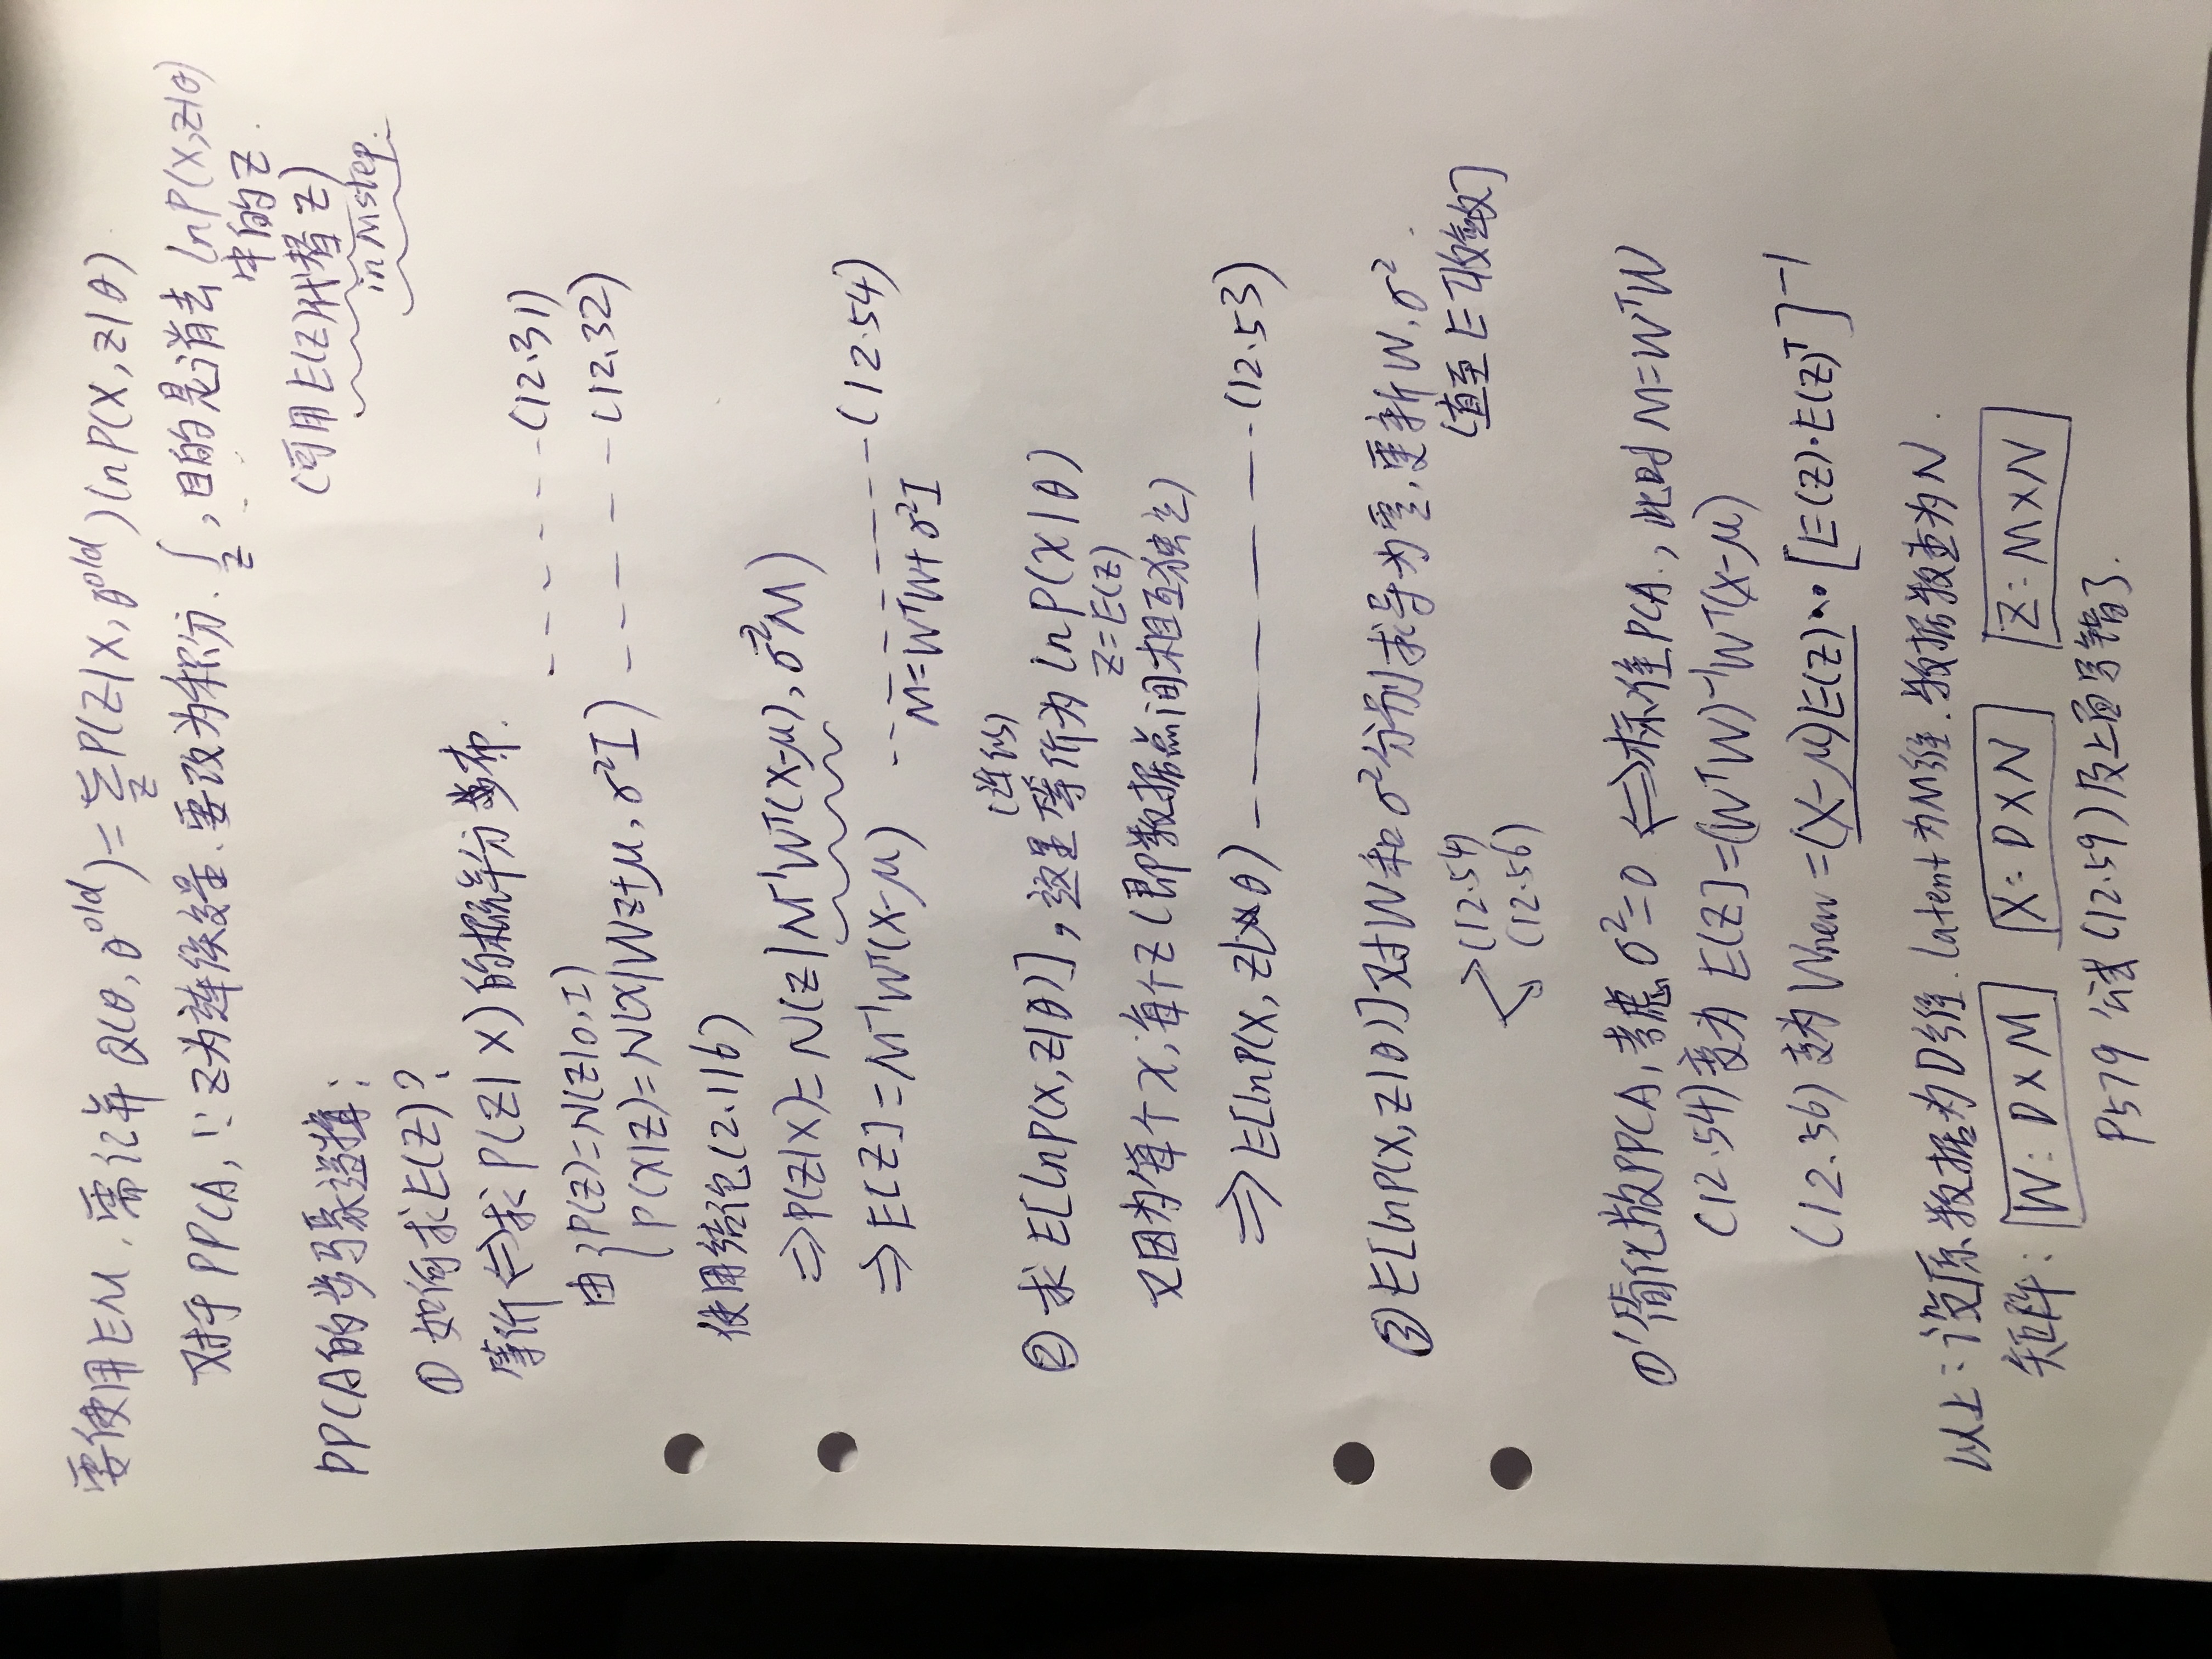 要使用EM，需计算 Q(θ, θ^old) = Σ_Z P(Z|X, θ^old) ln P(X, Z|θ)
对于 PPCA, ∵ Z为连续变量、要改为积分、∫_Z , 目的是消去 ln P(X,Z|θ)
中的Z.
(可用 E(Z)代替 Z)
in M step.
PPCA的步骤逻辑：
① 如何求E(Z)?
等价 ⇔ 求 P(Z|X) 的概率分布.
由 { P(Z)=N(Z|0,I) ------- (12.31)
P(X|Z)=N(X|WZ+μ, σ²I) ------ (12.32)
使用结论(2.116)
⇒ P(Z|X)= N(Z|M⁻¹Wᵀ(X-μ), σ⁻²M)
⇒ E[Z] = M⁻¹Wᵀ(X-μ) --------- (12.54)
M=WᵀW+σ²I
(近似)
② 求 E[lnP(X,Z|θ)], 这里等价为 ln P(X|θ)
Z=E(Z)
又因为每个x, 每个Z (即数据点间相互独立)
⇒ E[lnP(X, Z|θ) — — — — — (12.53)
③ E[lnP(X,Z|θ)]对W和σ²分别求导为零, 更新W, σ².
(直至E收敛]
(12.54)
(12.56)
①' 简化版PPCA, 考虑 σ²=0 ⇔ 标准PCA., 此时 M=WᵀW
(12.54)变为 E(Z]=(WᵀW)⁻¹Wᵀ(X-μ)
(12.56) 变为 Wnew = (X-μ)E(Z)·[E(Z)·E(Z)ᵀ]⁻¹
以上：设原数据为D维. latent为M维. 数据数量为N.
矩阵： W: D×M X: D×N Z: M×N
P579 公式 (12.59) 及上面写错了.